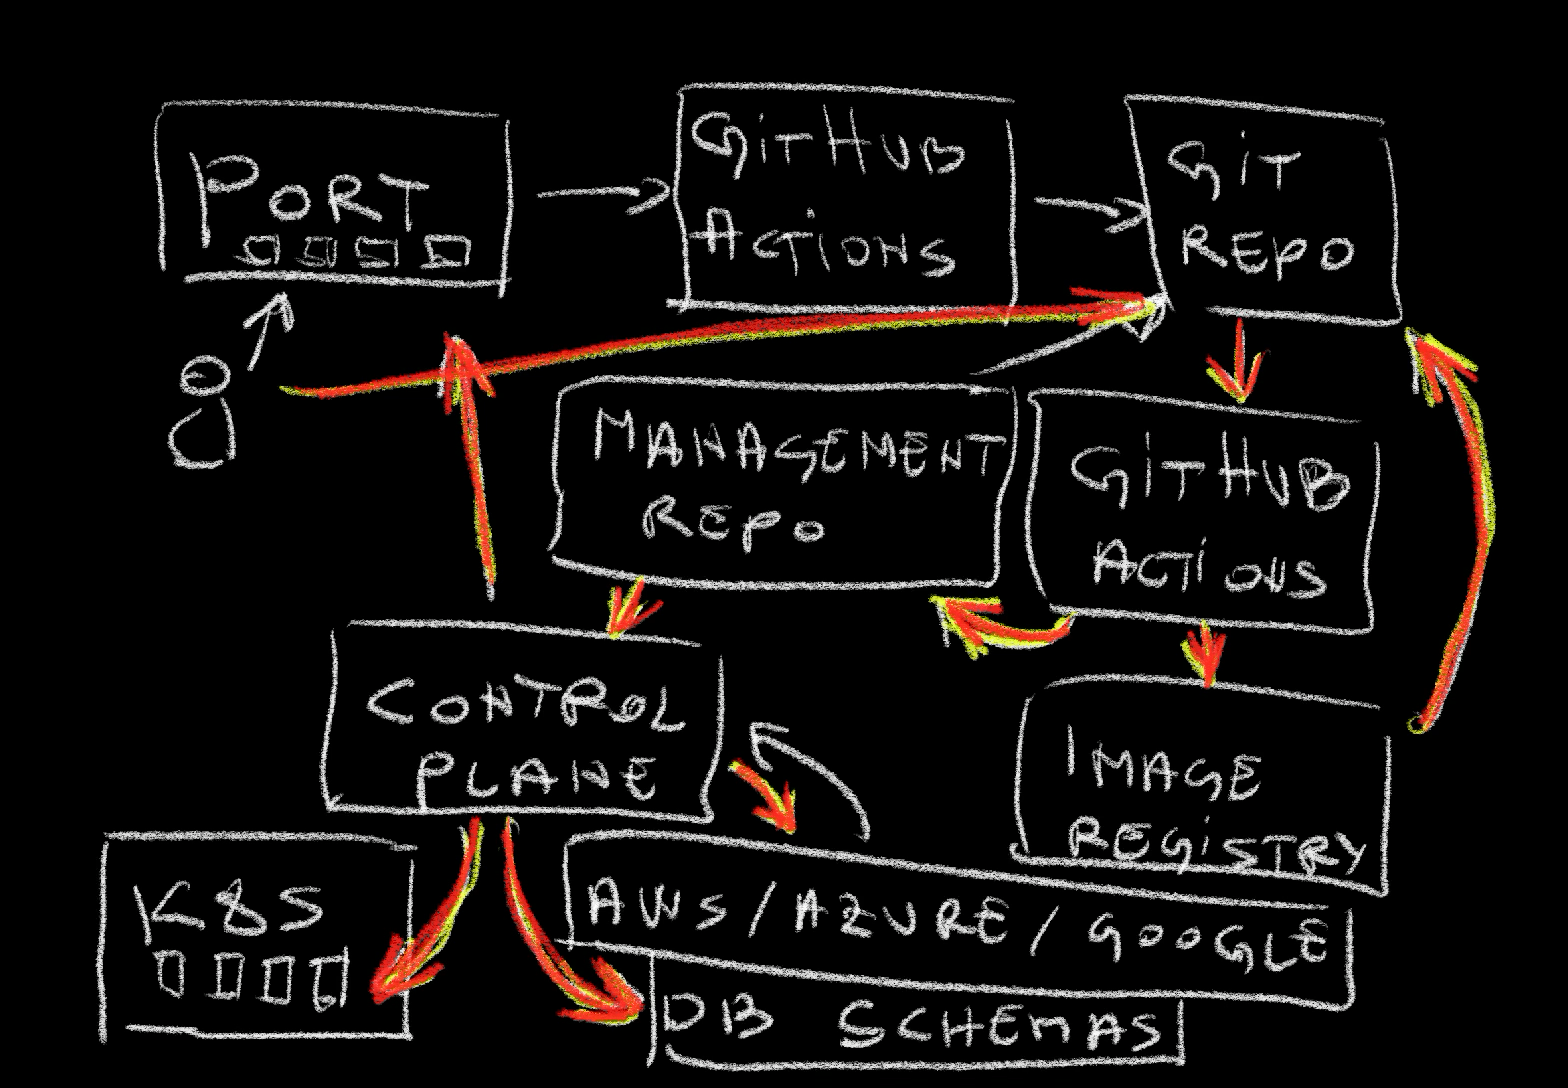 PORT
GitHub
Actions
Git
Repo
Management
Repo
GitHub
Actions
Control
Plane
Image
Registry
K8S
AWS / Azure / Google
DB Schemas